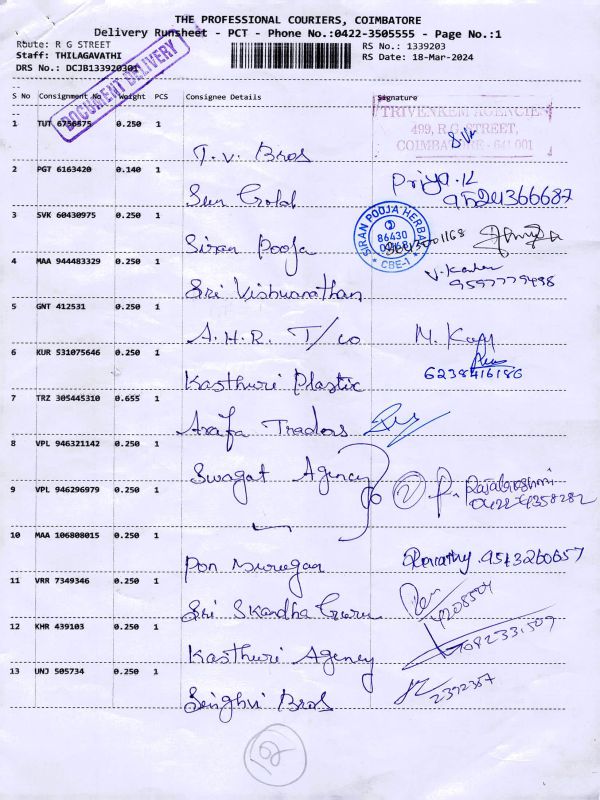 THE PROFESSIONAL COURIERS, COIMBATORE
Delivery Runsheet - PCT - Phone No.:0422-3505555 - Page No.:1
Route: R G STREET
RS No.: 1339203
Staff: THILAGAVATHI
RS Date: 18-Mar-2024
DRS No.: DCJB133920301
DOCUMENT DELIVERY
S No Consignment No Weight PCS Consignee Details Signature
1 TUT 6736875 0.250 1 T. V. Bros
TRIVENKEM AGENCIES
499, R.G. STREET,
COIMBATORE - 641 001
2 PGT 6163420 0.140 1 Sun Global Priya.K
3 SVK 60430975 0.250 1 Siran Pooja
SIRAN POOJA HERBAL
86430
CBE-1
4 MAA 944483329 0.250 1 Sri Vishwanathan
5 GNT 412531 0.250 1 A.H.R. T/co
6 KUR 531075646 0.250 1 Kasthuri Plastic
6238416186
7 TRZ 305445310 0.655 1 Arafa Traders
8 VPL 946321142 0.250 1 Swagat Agency
9 VPL 946296979 0.250 1 2
0422-4358282
10 MAA 106808015 0.250 1 Pon Murugan
11 VRR 7349346 0.250 1 Sri Skandha Guru
12 KHR 439103 0.250 1 Kasthuri Agency
13 UNJ 505734 0.250 1 Singhvi Bros
2392357